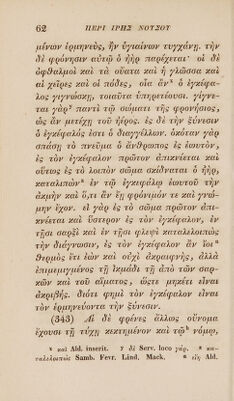 62 ΠΕΡΙ ΙΡΗΣ ΝΟΥΣΟΥ
μένων ἑρμηνεὺς, ἢν ὑγιαίνων τυγχάνῃ. τὴν
δὲ φρόνησιν αὐτῷ ὁ ἠὴρ παρέχεται· οἱ δὲ
ὀφθαλμοὶ καὶ τὰ οὔατα καὶ ἡ γλῶσσα καὶ
αἱ χεῖρες καὶ οἱ πόδες, οἷα ἂν ὁ ἐγκέφα-
λος γιγνώσκῃ, τοιαῦτα ὑπηρετέουσι. γίγνε-
ται γὰρ παντὶ τῷ σώματι τῆς φρονήσιος,
ὡς ἂν μετέχῃ τοῦ ἠέρος. ἐς δὲ τὴν ξύνεσιν
ὁ ἐγκέφαλός ἐστι ὁ διαγγέλλων. ὁκόταν γὰρ
σπάσῃ τὸ πνεῦμα ὁ ἄνθρωπος ἐς ἑωυτὸν,
ἐς τὸν ἐγκέφαλον πρῶτον ἀπικνέεται καὶ
οὕτως ἐς τὸ λοιπὸν σῶμα σκίδναται ὁ ἠὴρ,
καταλιπὼν ἐν τῷ ἐγκεφάλῳ ἑωυτοῦ τὴν
ἀκμὴν καὶ ὅ,τι ἂν ἔῃ φρόνιμόν τε καὶ γνώ-
μην ἔχον. εἰ γὰρ ἐς τὸ σῶμα πρῶτον ἀπι-
κνέεται καὶ ὕστερον ἐς τὸν ἐγκέφαλον, ἐν
τῇσι σαρξὶ καὶ ἐν τῇσι φλεψὶ καταλελοιπὼς
τὴν διάγνωσιν, ἐς τὸν ἐγκέφαλον ἂν ἴοι
θερμὸς ἐτὶ ἐὼν καὶ οὐχὶ ἀκραιφνὴς, ἀλλὰ
ἐπιμεμιγμένος τῇ ἰκμάδι τῇ ἀπὸ τῶν σαρ-
κῶν καὶ τοῦ αἵματος, ὥστε μηκέτι εἶναι
ἀκριβής. διότι φημὶ τὸν ἐγκέφαλον εἶναι
τὸν ἑρμηνεύοντα τὴν ξύνεσιν.
(343) Αἱ δὲ φρένες ἄλλως οὔνομα
ἔχουσι τῇ τύχῃ κεκτημένον καὶ τῷ νόμῳ,
x καὶ Ald. inserit. y δὲ Serv. loco γάρ. z κα-
ταλελοιπὼς Samb. Fevr. Lind. Mack. a εἴη Ald.